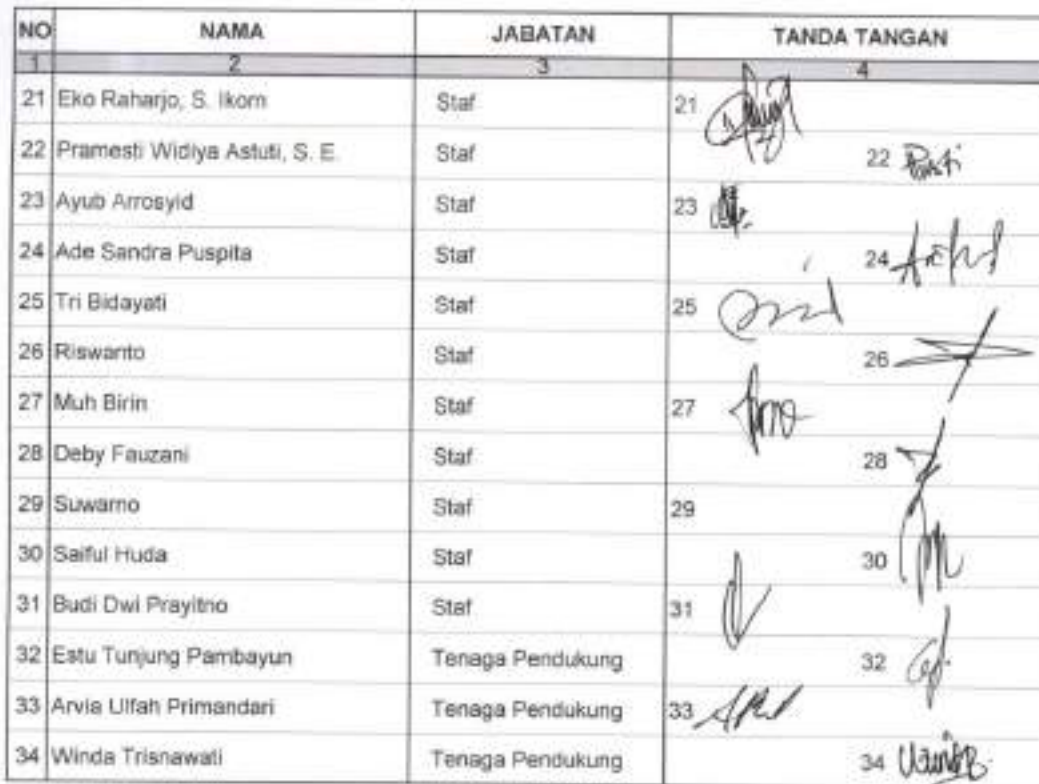 NO NAMA JABATAN TANDA TANGAN
1 2 3 4
21 Eko Raharjo, S. Ikom Staf 21
22 Pramesti Widiya Astuti, S. E. Staf 22
23 Ayub Arrosyid Staf 23
24 Ade Sandra Puspita Staf 24
25 Tri Bidayati Staf 25
26 Riswanto Staf 26
27 Muh Birin Staf 27
28 Deby Fauzani Staf 28
29 Suwarno Staf 29
30 Saiful Huda Staf 30
31 Budi Dwi Prayitno Staf 31
32 Estu Tunjung Pambayun Tenaga Pendukung 32
33 Arvia Ulfah Primandari Tenaga Pendukung 33
34 Winda Trisnawati Tenaga Pendukung 34